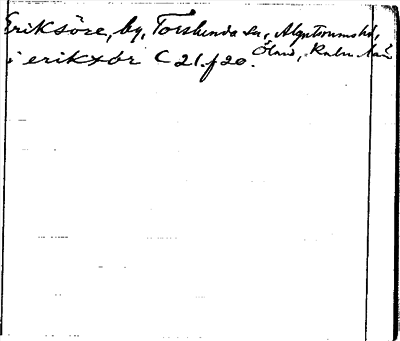 Eriksöre, by, Torslunda sn, Algutsrums hd,
Öland, Kalm. län
i eriksør C 21. f 20.